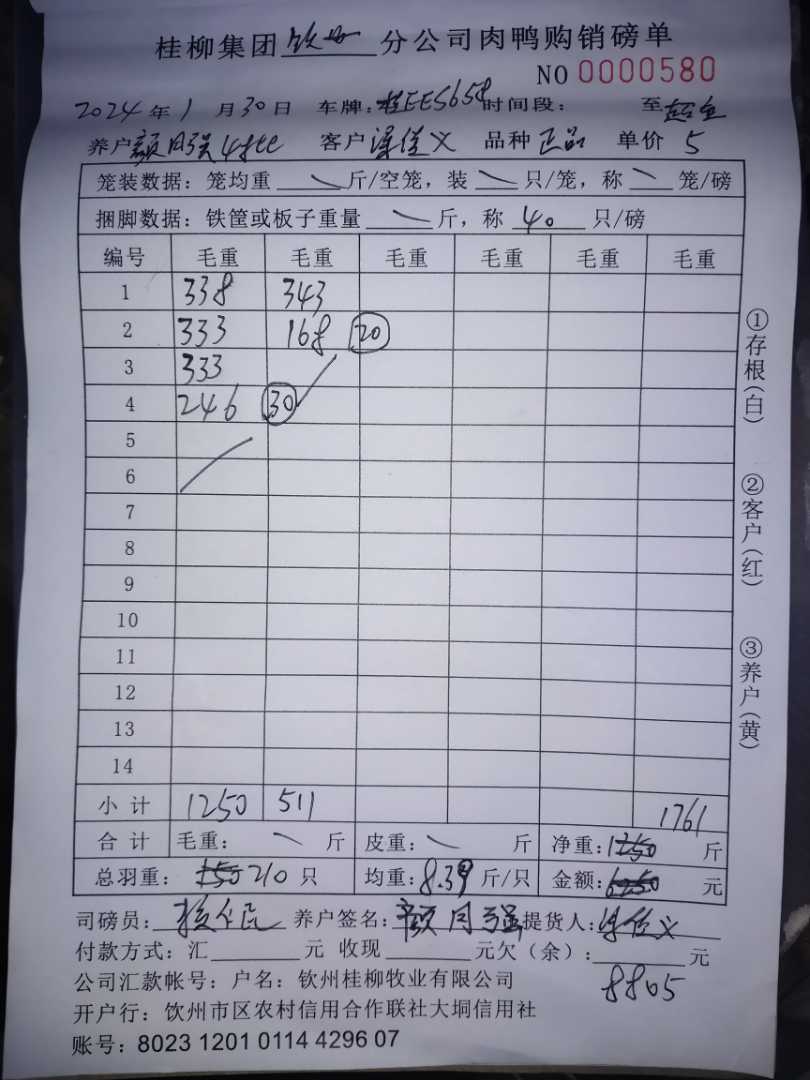 桂柳集团 钦州 分公司肉鸭购销磅单
NO 0000580
2024年1月30日 车牌:桂EE5658 时间段: 至
养户 颜同强 客户 梁佳义 品种 正品 单价 5
笼装数据:笼均重 斤/空笼,装 只/笼,称 笼/磅
捆脚数据:铁筐或板子重量 斤,称 40 只/磅
编号 毛重 毛重 毛重 毛重 毛重 毛重
1 338 343
2 333 168 20
3 333
4 246 30
5
6
7
8
9
10
11
12
13
14
小计 1250 511 1761
合计 毛重: 斤 皮重: 斤 净重:1250 斤
总羽重:150 210 只 均重:8.39 斤/只 金额:6250 元
司磅员: 养户签名:颜同强 提货人:梁佳义
付款方式:汇 元 收现 元欠(余): 元
8805
公司汇款帐号:户名:钦州桂柳牧业有限公司
开户行:钦州市区农村信用合作联社大垌信用社
账号:8023 1201 0114 4296 07
①存根(白)
②客户(红)
③养户(黄)